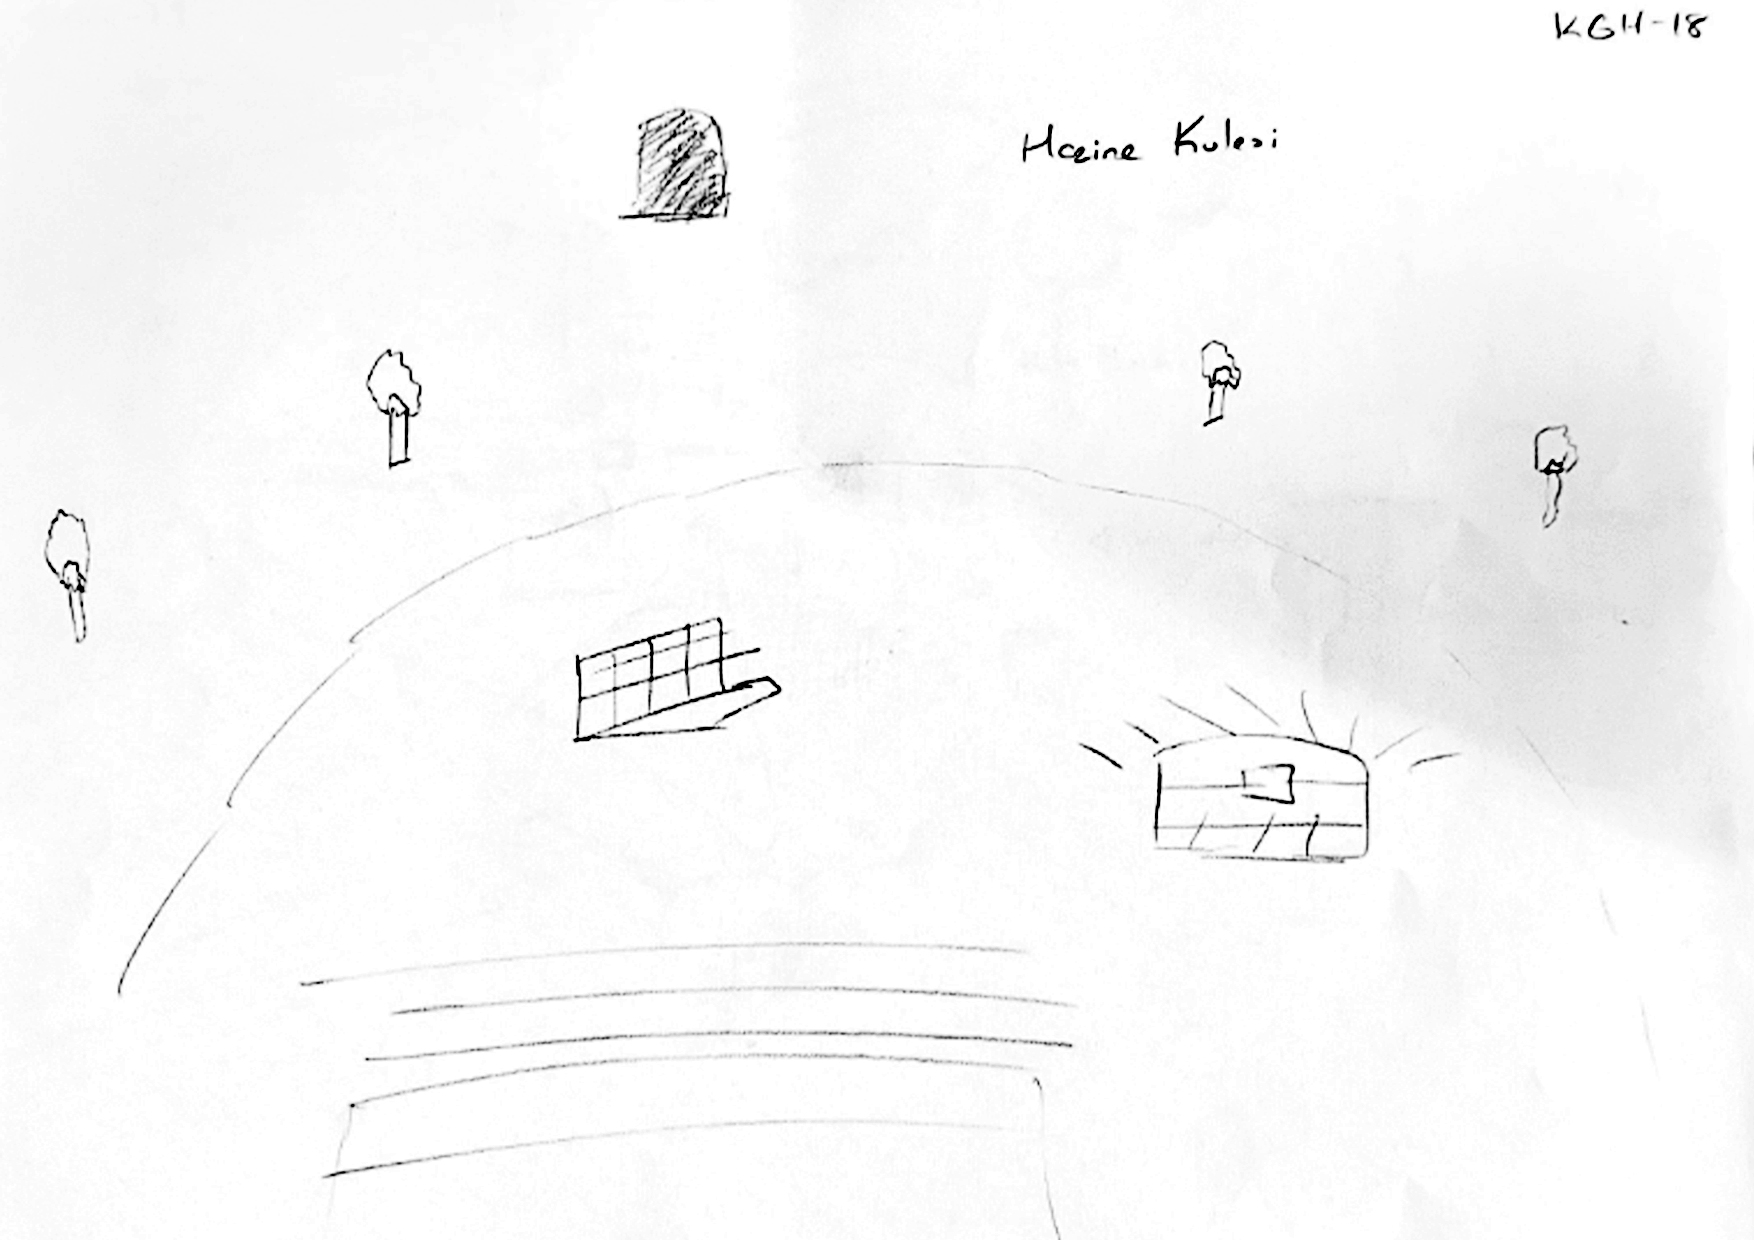 KGH-18
Hazine Kulesi